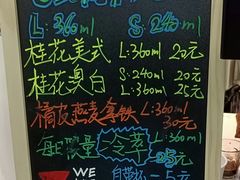 L:360ml S:240ml
桂花美式 L:360ml 20元
桂花澳白 S:240ml 25元
L:360ml
橘皮燕麦拿铁 L:360ml 30元
每日限量 冷萃
25元
WE 自带杯 -5元